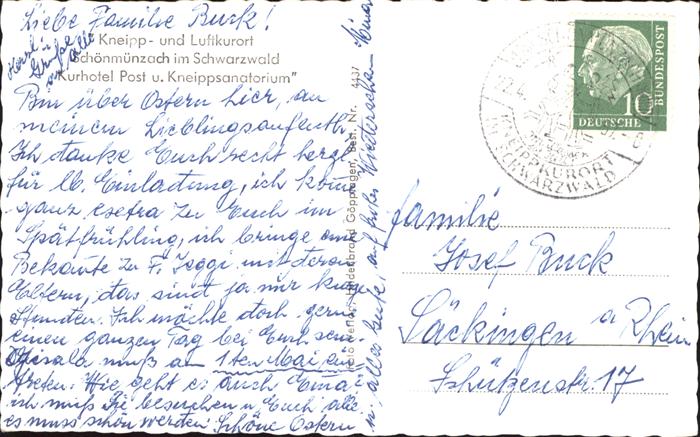 Liebe Familie Buck!
Herzl.
Grüße
an alle
Kneipp- und Luftkurort
Schönmünzach im Schwarzwald
"Kurhotel Post u. Kneippsanatorium"
Bin über Ostern hier, an
meinem Lieblingsaufenth.
Ich danke Euch recht herzl.
für lb. Einladung, ich kome
ganz extra zu Euch im
Spätfrühling, ich bringe eine
Bekante zu F. Jäggi mit deren
Eltern, das sind ja nur kurze
Stunden. Ich möchte doch gern
einen ganzen Tag bei Euch sein.
muß am 1ten Mai ein
treten. Wie geht es auch
ich muß Sie besuchen u. Euch alle,
es muss schön werden. Schöne Ostern
u. alles Gute, auf frohes Wiedersehen
Göppingen, Best. Nr. 4437
10
DEUTSCHE
BUNDESPOST
KNEIPPKURORT
IM SCHWARZWALD
Familie
Josef Buck
Säckingen a Rhein
Schützenstr. 17